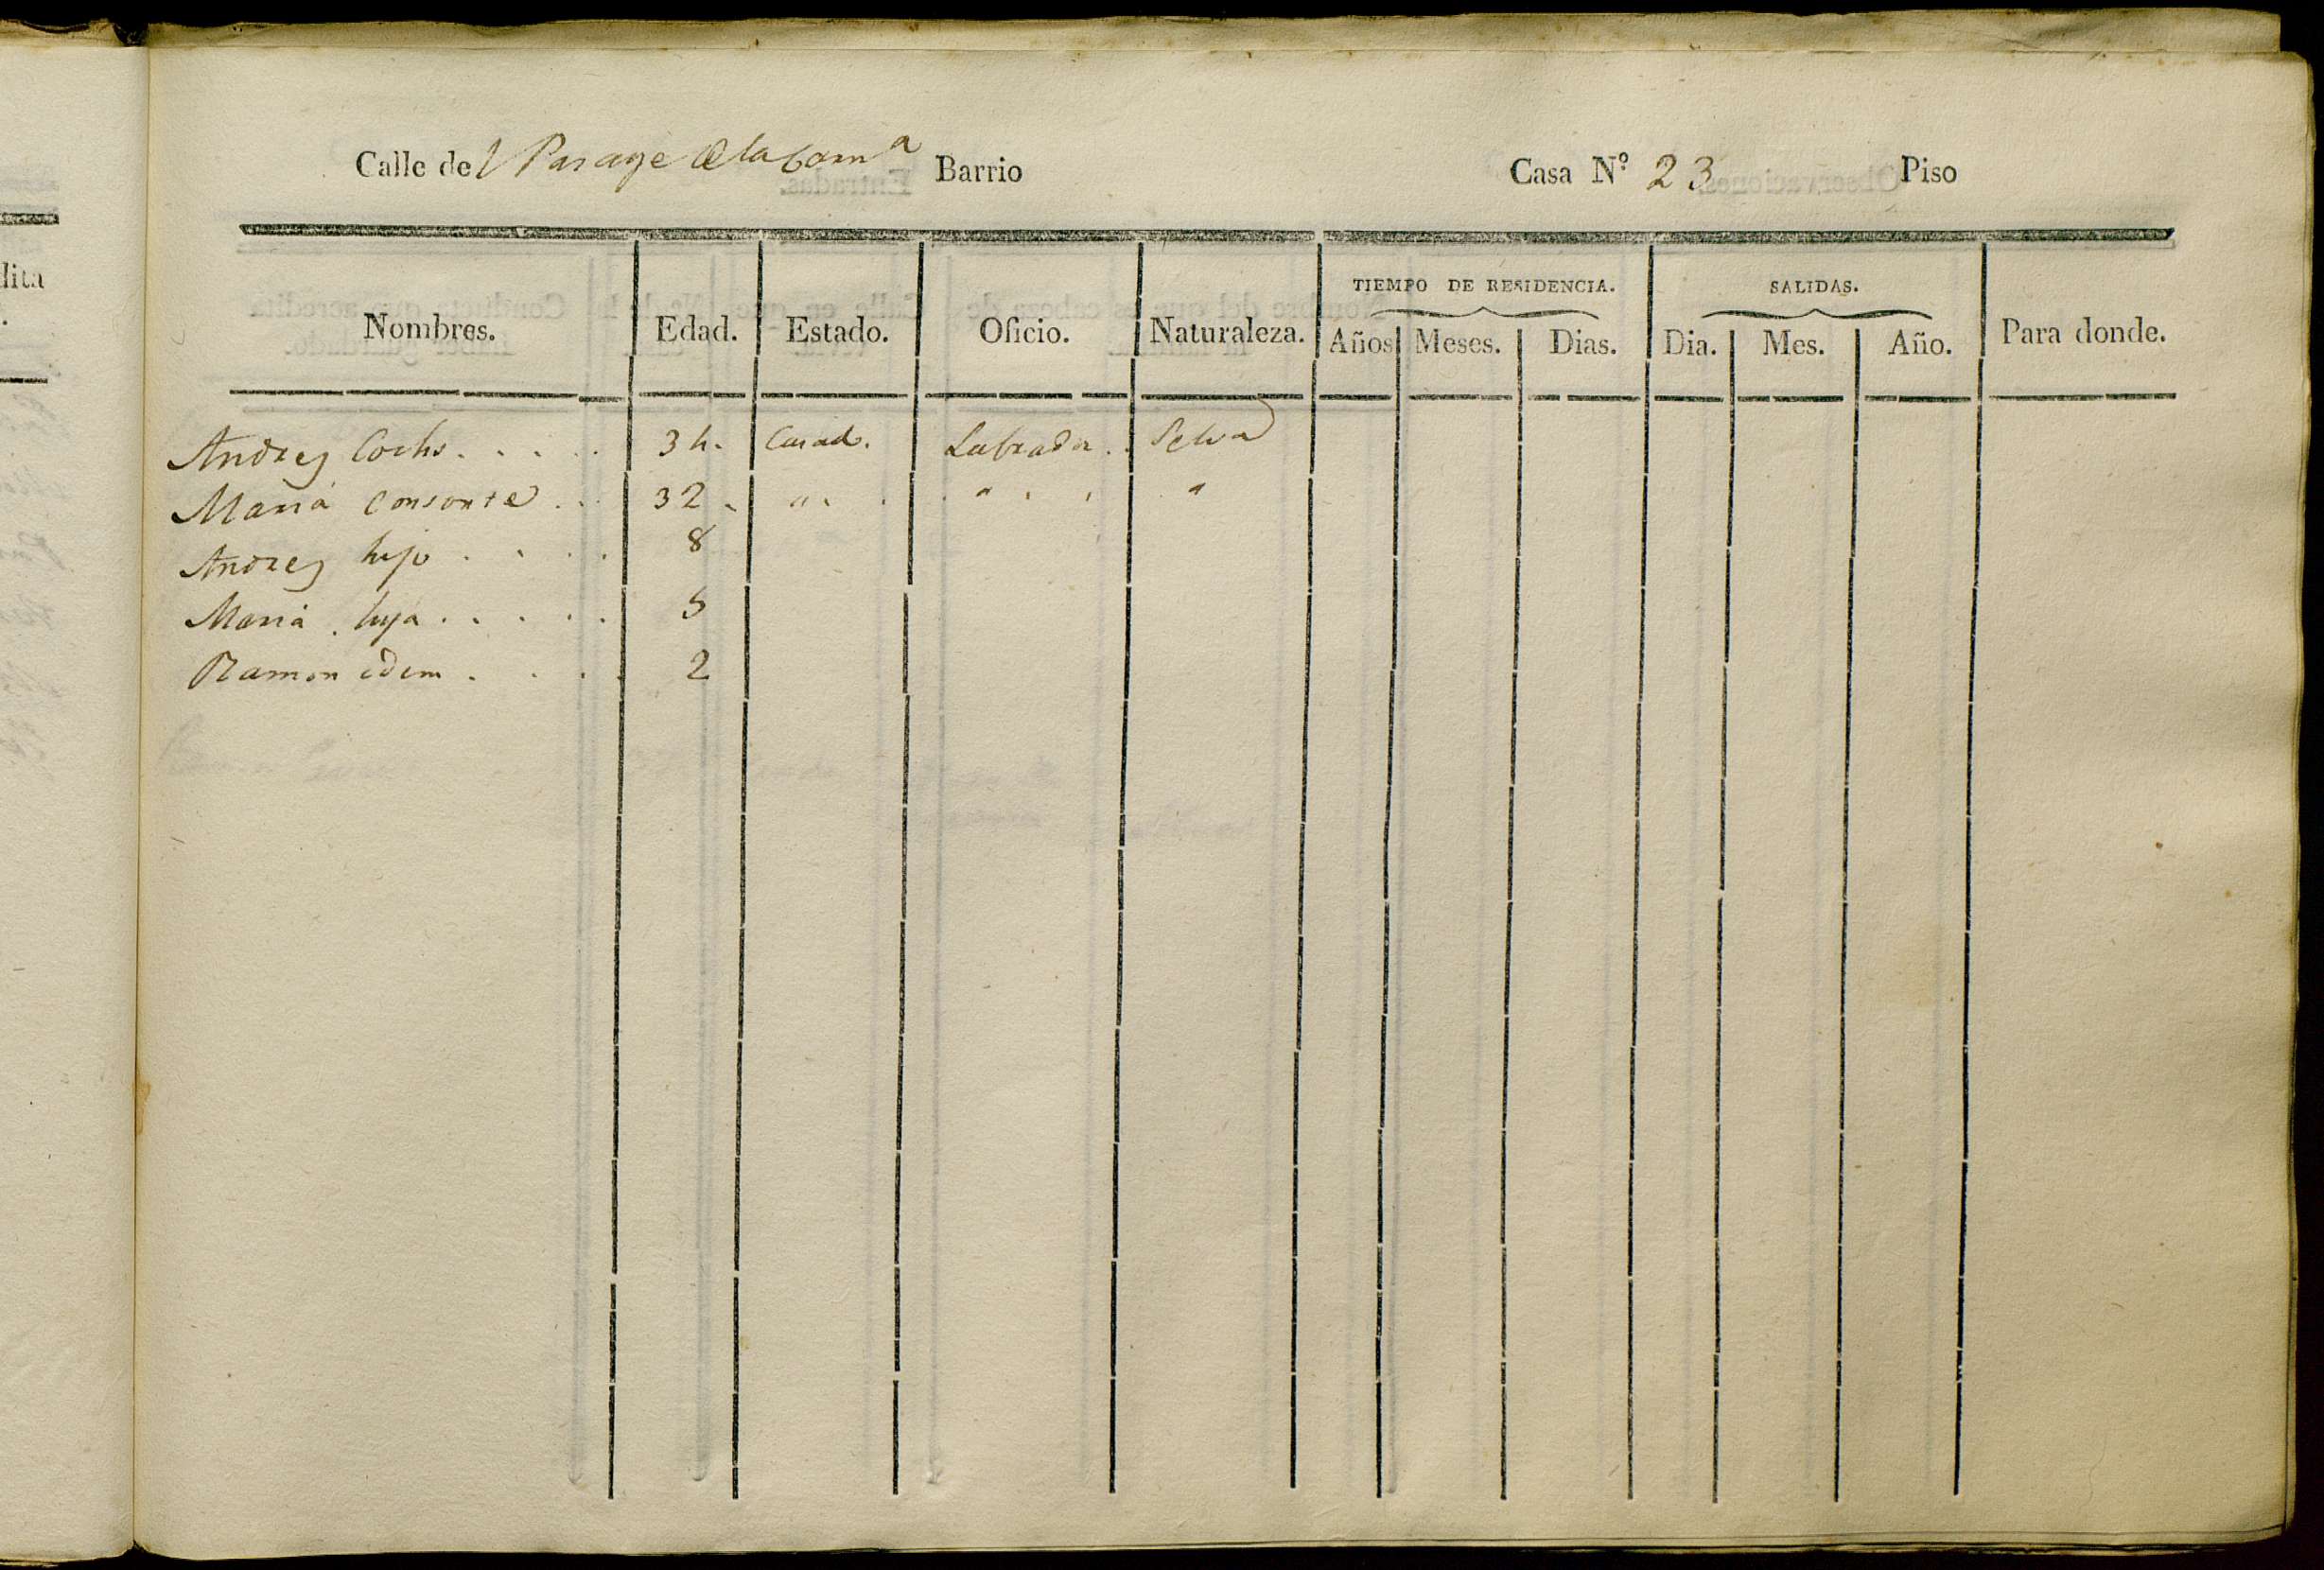 Calle del Parage Barrio Casa N.º 23 Piso
Nombres. Edad. Estado. Oficio. Naturaleza. TIEMPO DE RESIDENCIA. Años Meses. Dias. SALIDAS. Dia. Mes. Año. Para donde.
Andres . . . . . 34. Casad. Labrador . . Selva
Maria consorte . . 32 . " . . " . . "
Andres hijo . . . . 8
Maria . hija . . . . . 5
Ramon idem . . . . 2
dita